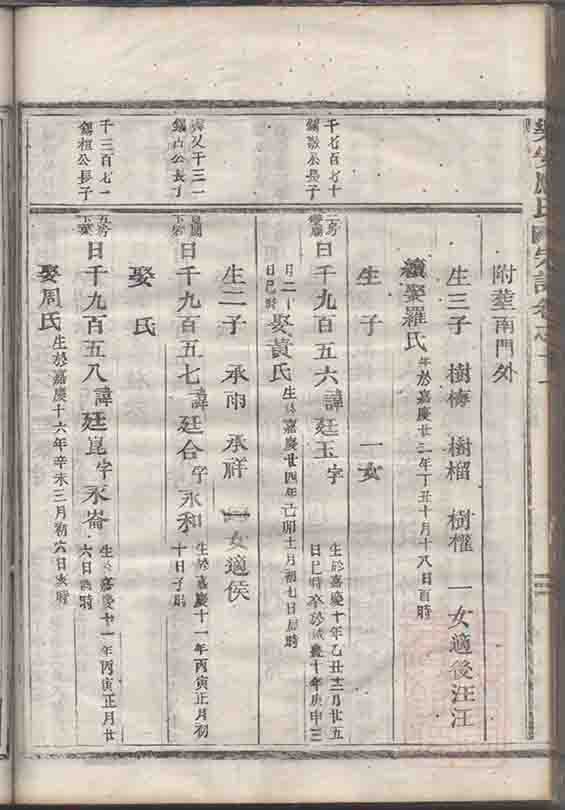 氏宗譜卷之十一
附塟南門外
生三子 樹梅 樹榴 樹權 一女適後汪江
續娶羅氏 生於嘉慶廿二年丁丑十月十八日酉時
生子 一女
千七百七十
錫 公長子
二房
日千九百五六諱廷玉字 生於嘉慶十年乙丑十二月廿五
日巳時卒於咸豊十年庚申三
月二十
日巳時 娶黃氏 生於嘉慶廿四年己卯十一月初七日 時
生二子 承雨 承祥 一女適侯
又千三一
錫 公長子
日千九百五七諱廷合字永和 生於嘉慶十一年丙寅正月初
十日子時
娶 氏
千三百七一
錫植公長子
五房
日千九百五八諱廷崑字永崙 生於嘉慶十一年丙寅正月廿
六日 時
娶周氏 生於嘉慶十六年辛未三月初六日亥時